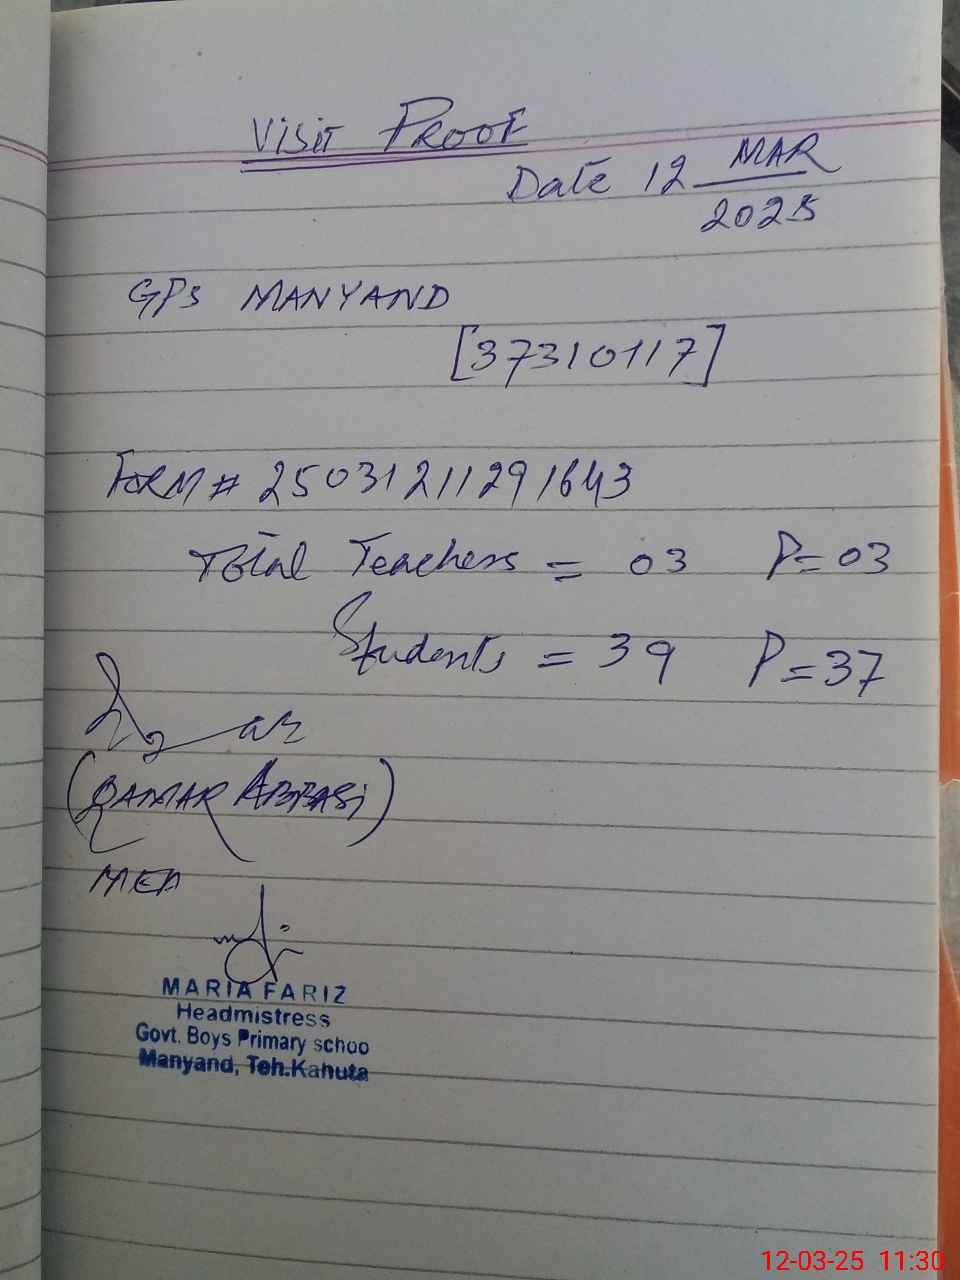 VISIT PROOF
Date 12 MAR
2025
GPS MANYAND
[37310117]
FORM # 25031211291643
Total Teachers = 03 P=03
Students = 39 P=37
(QAMAR ABBASI)
MEA
MARIA FARIZ
Headmistress
Govt. Boys Primary schoo
Manyand, Teh.Kahuta
12-03-25 11:30